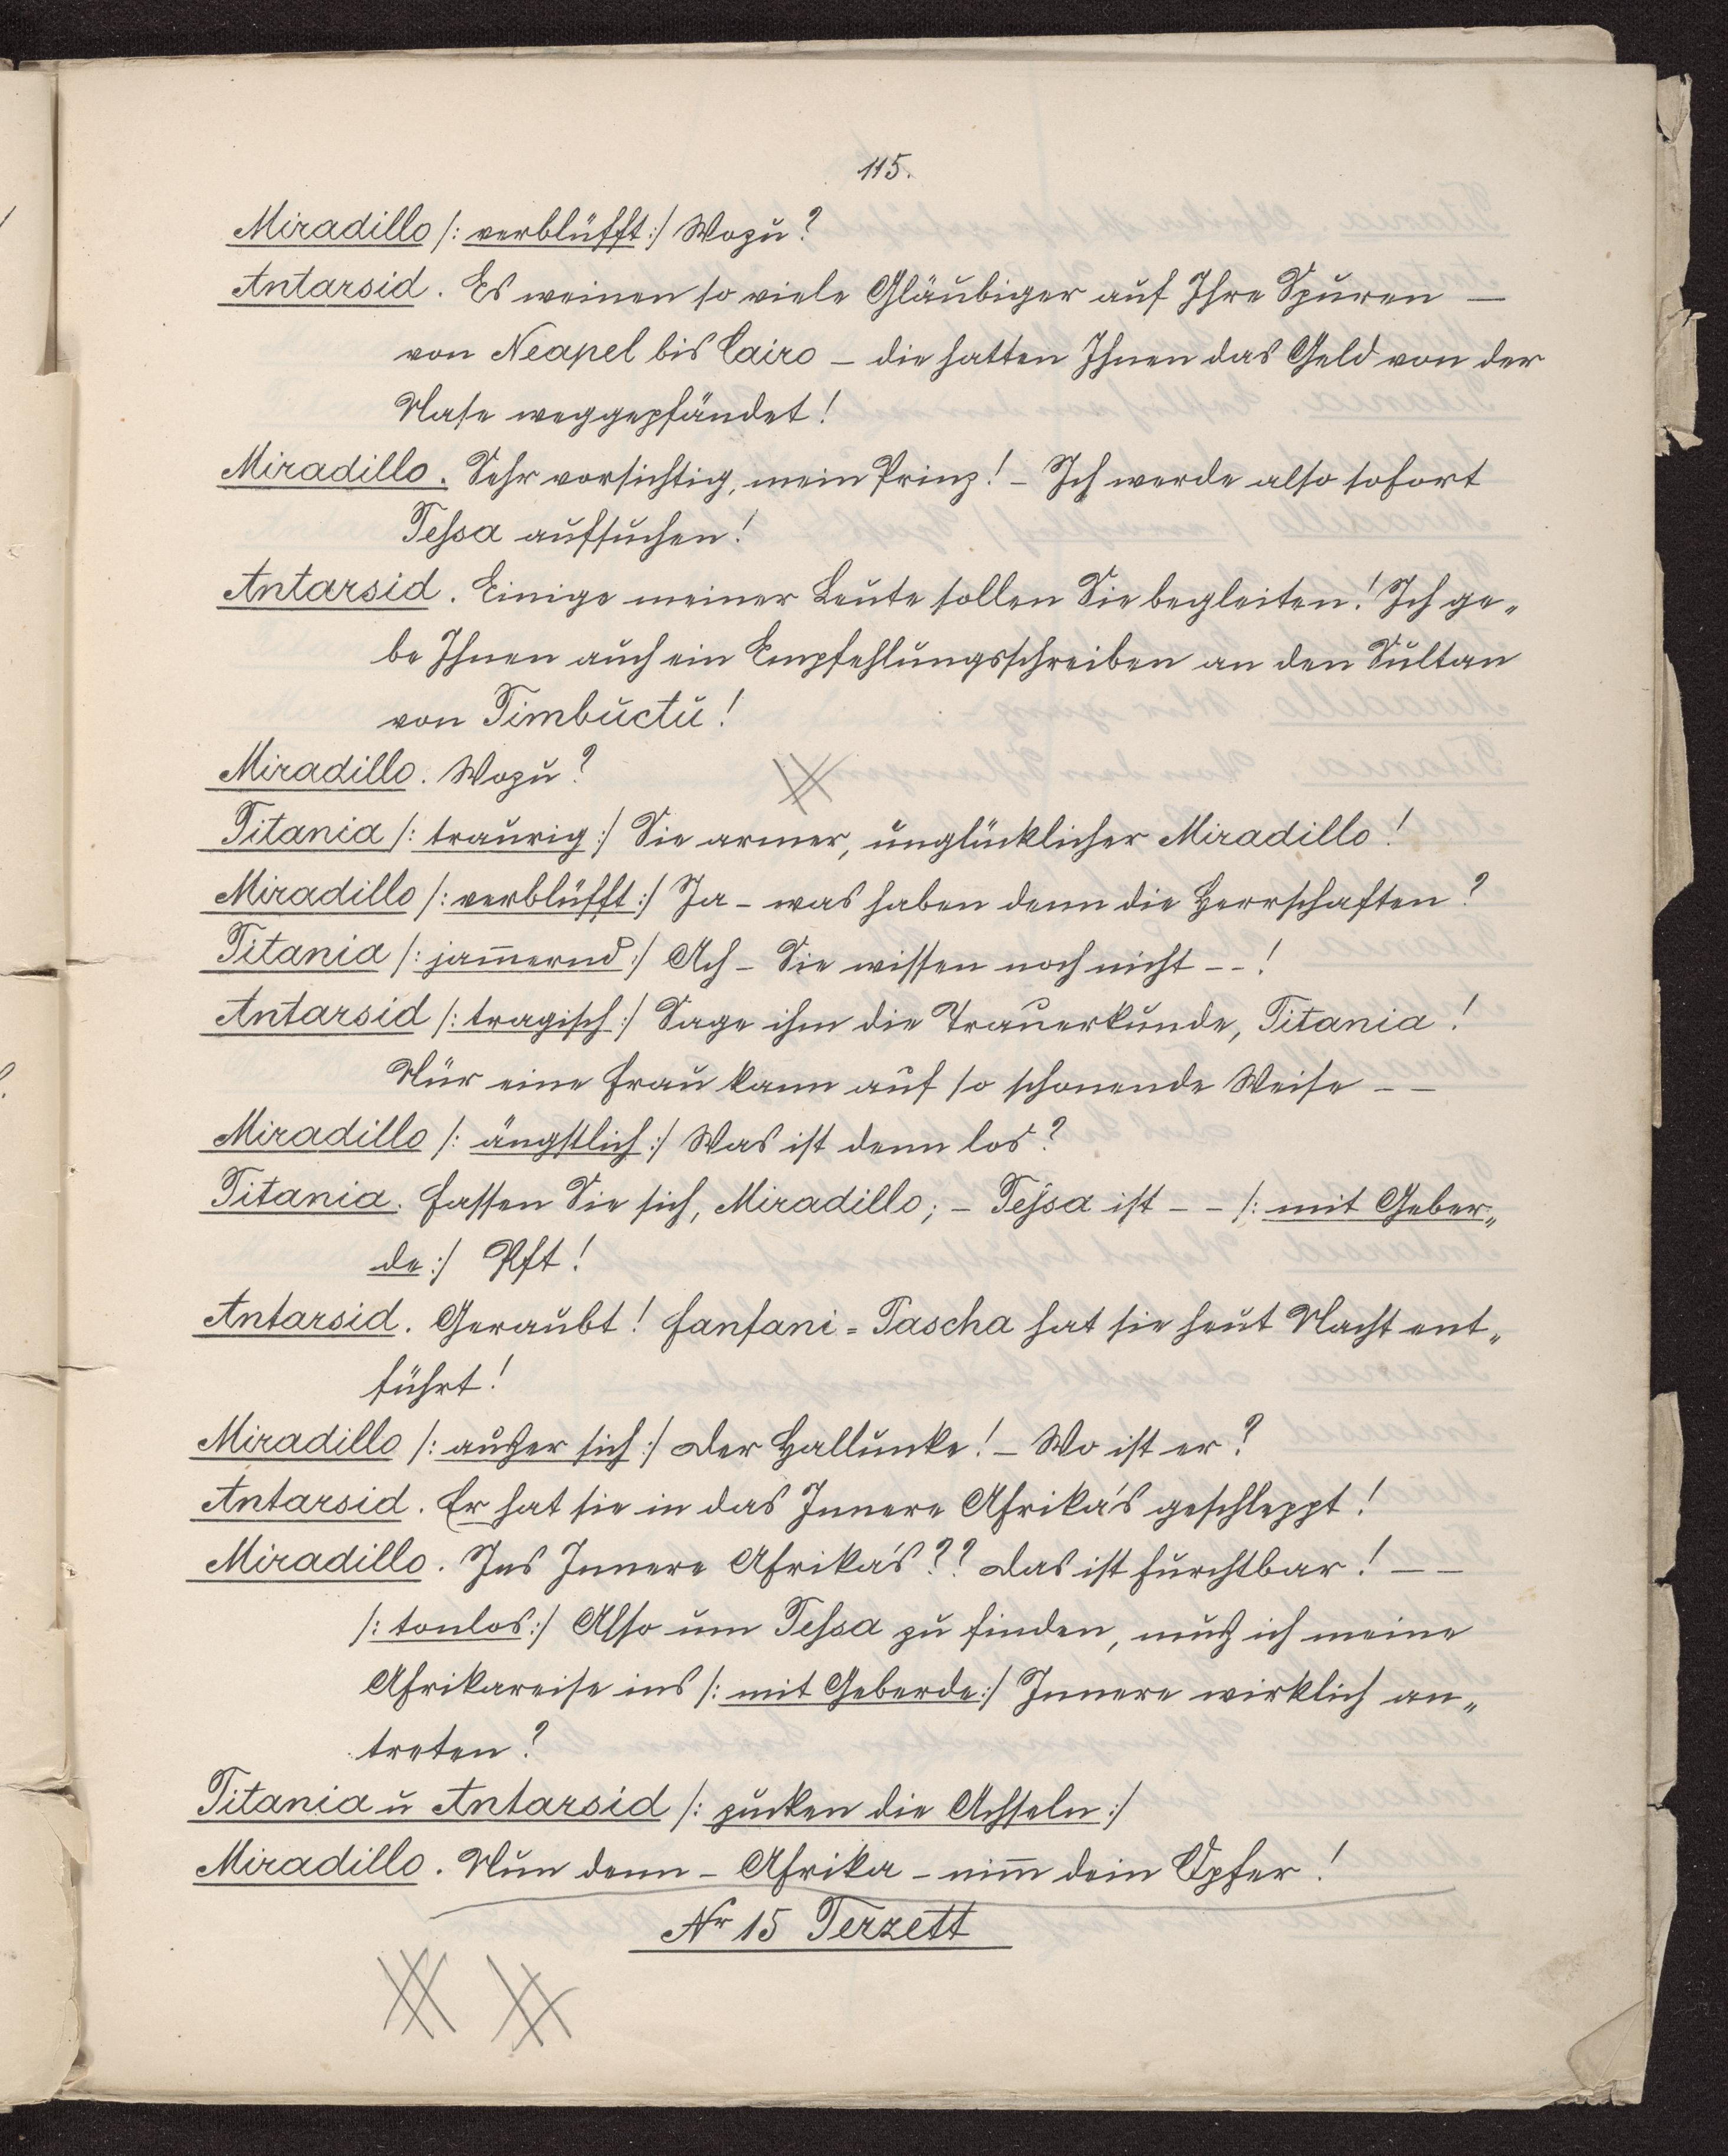 115.
Miradillo /: verblüfft :/ Wozu?
Antarsid. Es weinen so viele Gläubiger auf Ihre Spuren —
von Neapel bis Cairo – die hatten Ihnen das Geld von der
Nase weggepfändet!
Miradillo. Sehr vorsichtig, mein Prinz! – Ich werde also sofort
Tessa aufsuchen!
Antarsid. Einige meiner Leute sollen Sie begleiten! Ich ge„
be Ihnen auch ein Empfehlungsschreiben an den Sultan
von Timbuctu!
Miradillo. Wozu?
Titania /: traurig :/ Sie armer, unglücklicher Miradillo!
Miradillo /: verblüfft :/ Ja – was haben denn die Herrschaften?
Titania /: jam̄ernd :/ Ach – Sie wissen noch nicht – – !
Antarsid /: tragisch :/ Sage ihm die Trauerkunde, Titania!
Nur eine Frau kann auf so schonende Weise – –
Miradillo /: ängstlich :/ Was ist denn los?
Titania. Fassen Sie sich, Miradillo; – Tessa ist – – /: mit Geber„
de :/ Pft!
Antarsid. Geraubt! Fanfani = Pascha hat sie heut Nacht ent„
führt!
Miradillo /: außer sich :/ Der Hallunke! – Wo ist er?
Antarsid. Er hat sie in das Innere Afrika's geschleppt!
Miradillo. Ins Innere Afrika's?? Das ist furchtbar! – –
/: tonlos :/ Also um Tessa zu finden, muß ich meine
Afrikareise ins /: mit Geberde :/ Innere wirklich an„
treten?
Titania u Antarsid /: zucken die Achseln :/
Miradillo. Nun denn – Afrika – nim̄ dein Opfer!
Nr 15 Terzett